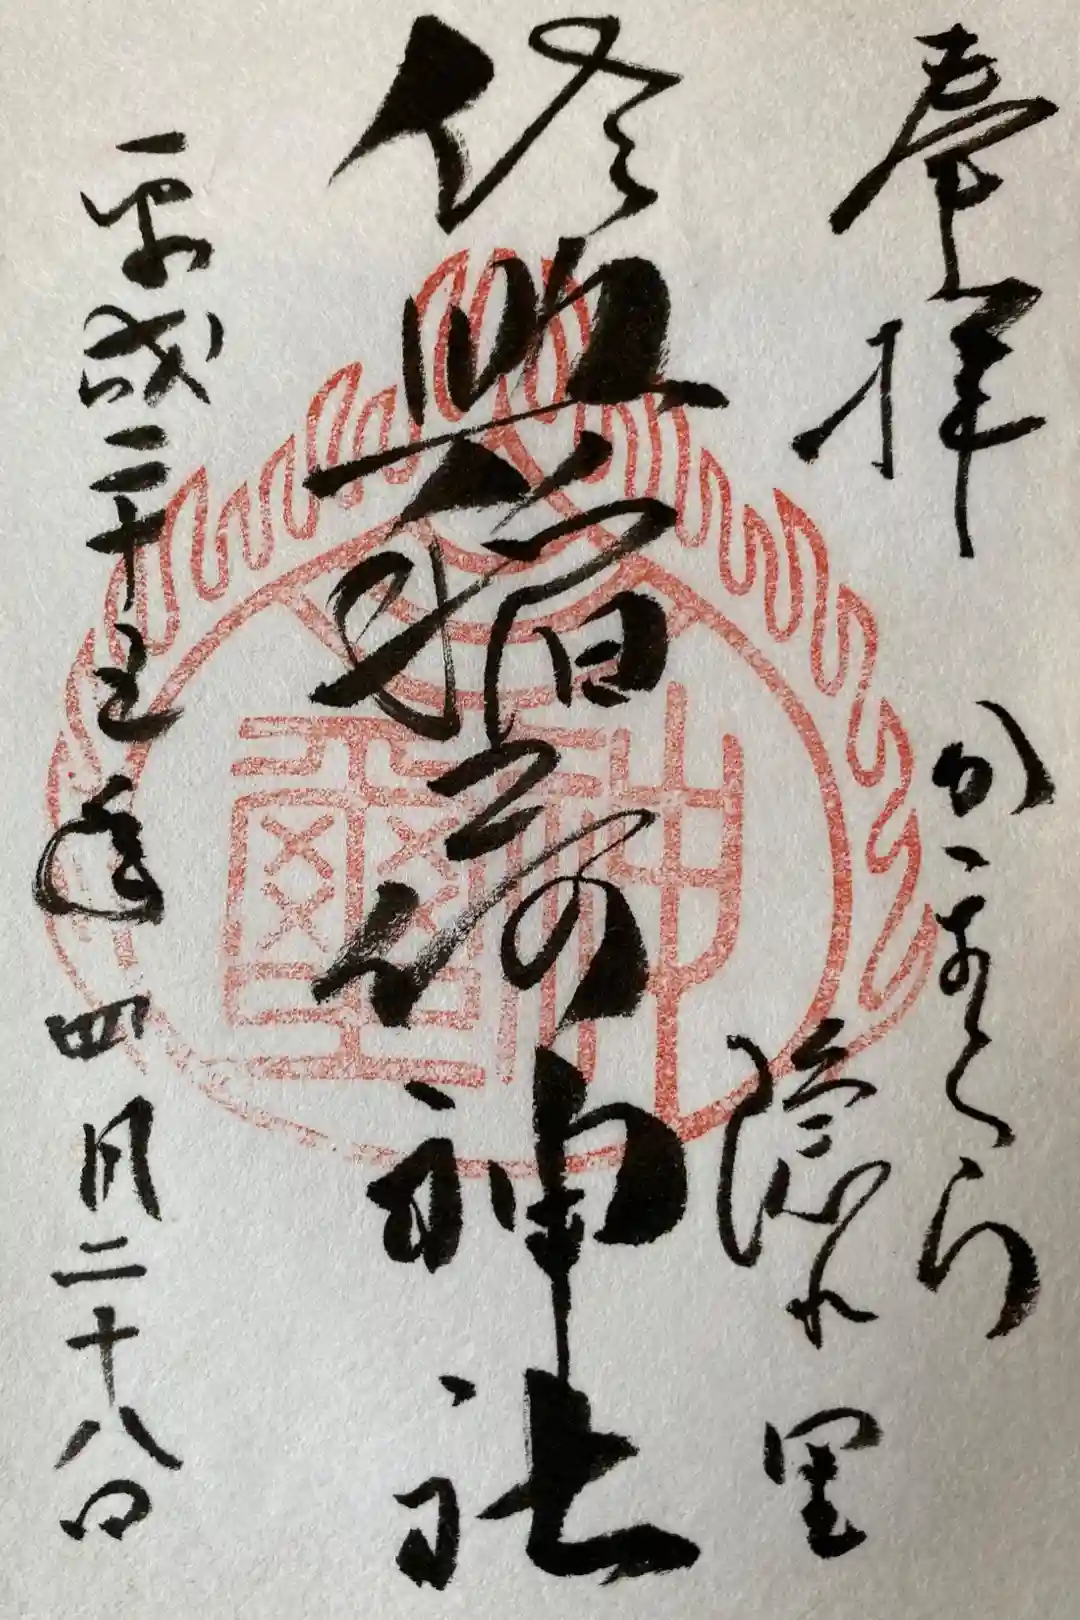 奉拝 かまくら
隠れ里
佐助稲荷神社
平成二十五年四月二十八日